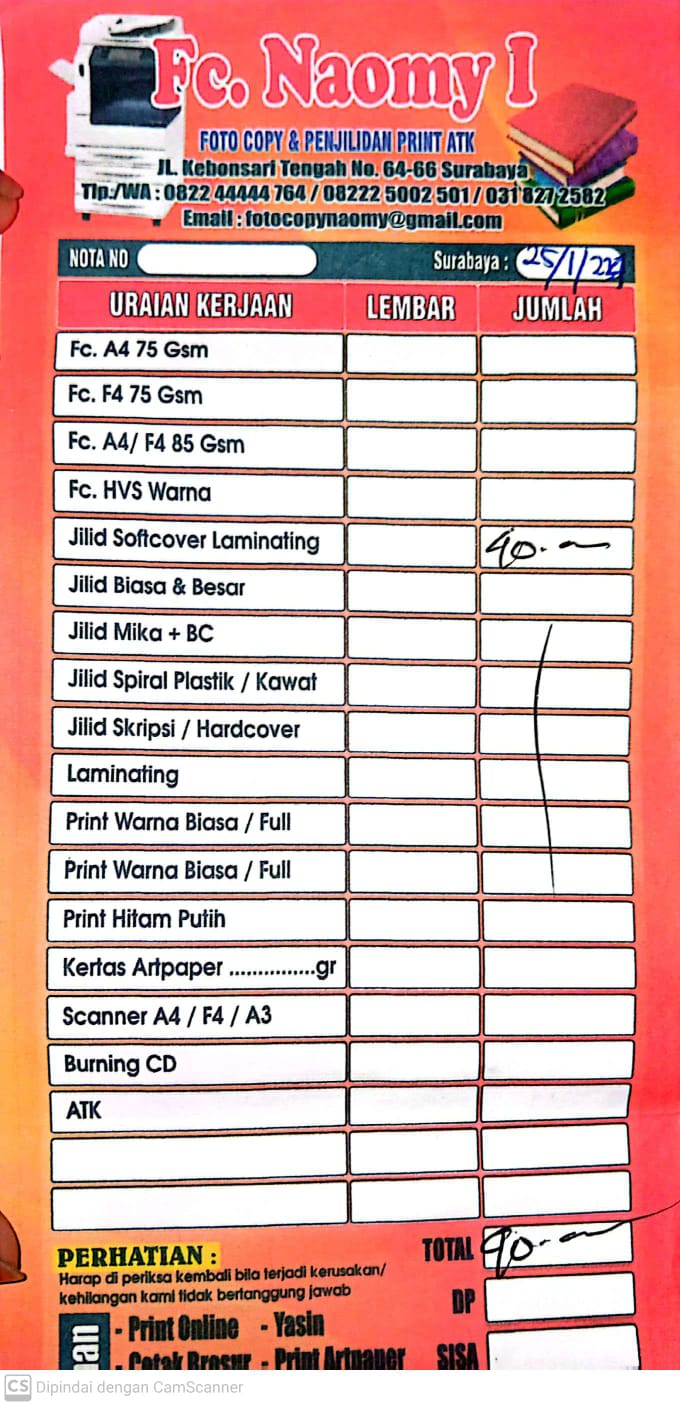 Fc. Naomy I
FOTO COPY & PENJILIDAN PRINT ATK
JL. Kebonsari Tengah No. 64-66 Surabaya
Tlp./WA : 0822 44444 764 / 08222 5002 501 / 031 827 2582
Email : fotocopynaomy@gmail.com
NOTA NO Surabaya : 25/1/22
URAIAN KERJAAN LEMBAR JUMLAH
Fc. A4 75 Gsm
Fc. F4 75 Gsm
Fc. A4/ F4 85 Gsm
Fc. HVS Warna
Jilid Softcover Laminating 90.-
Jilid Biasa & Besar
Jilid Mika + BC
Jilid Spiral Plastik / Kawat
Jilid Skripsi / Hardcover
Laminating
Print Warna Biasa / Full
Print Warna Biasa / Full
Print Hitam Putih
Kertas Artpaper ...............gr
Scanner A4 / F4 / A3
Burning CD
ATK
PERHATIAN : TOTAL 90.-
Harap di periksa kembali bila terjadi kerusakan/
kehilangan kami tidak bertanggung jawab
DP
- Print Online - Yasin
- Cetak Brosur - Print Artpaper SISA
CS Dipindai dengan CamScanner